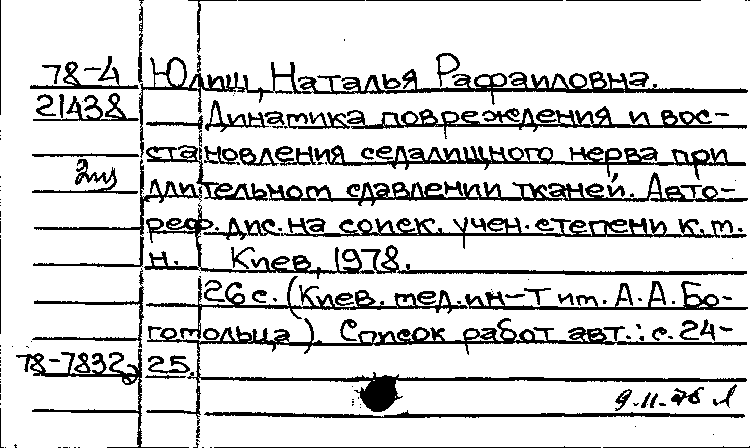 78-4 Юлиш, Наталья Рафаиловна.
21438 Динамика повреждения и вос-
становления седалищного нерва при
2 длительном сдавлении тканей. Авто-
реф. дис. на соиск. учен. степени к.м.
н. Киев, 1978.
26 с. (Киев. мед. ин-т им. А.А. Бо-
гомольца). Список работ авт.: с. 24-
78-7832 25.
9.11.78